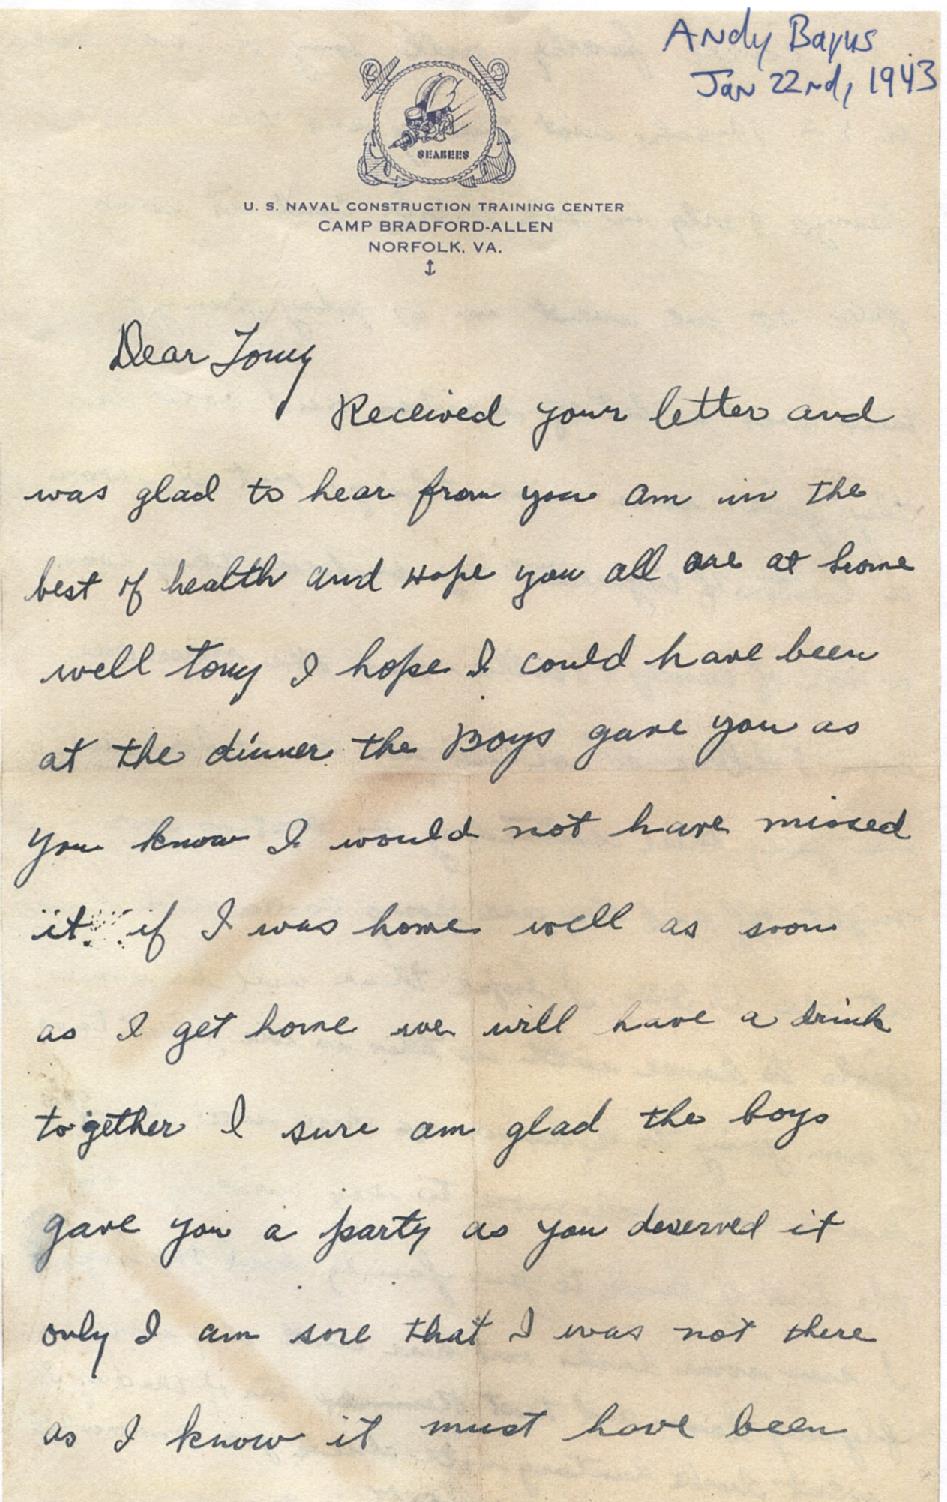 Andy Bayus
Jan 22nd, 1943
SEABEES
U. S. NAVAL CONSTRUCTION TRAINING CENTER
CAMP BRADFORD-ALLEN
NORFOLK, VA.
Dear Tony
Received your letter and
was glad to hear from you am in the
best of health and Hope you all are at home
well Tony I hope I could have been
at the dinner the Boys gave you as
you know I would not have missed
it if I was home well as soon
as I get home we will have a drink
together I sure am glad the boys
gave you a party as you deserved it
only I am sore that I was not there
as I know it must have been